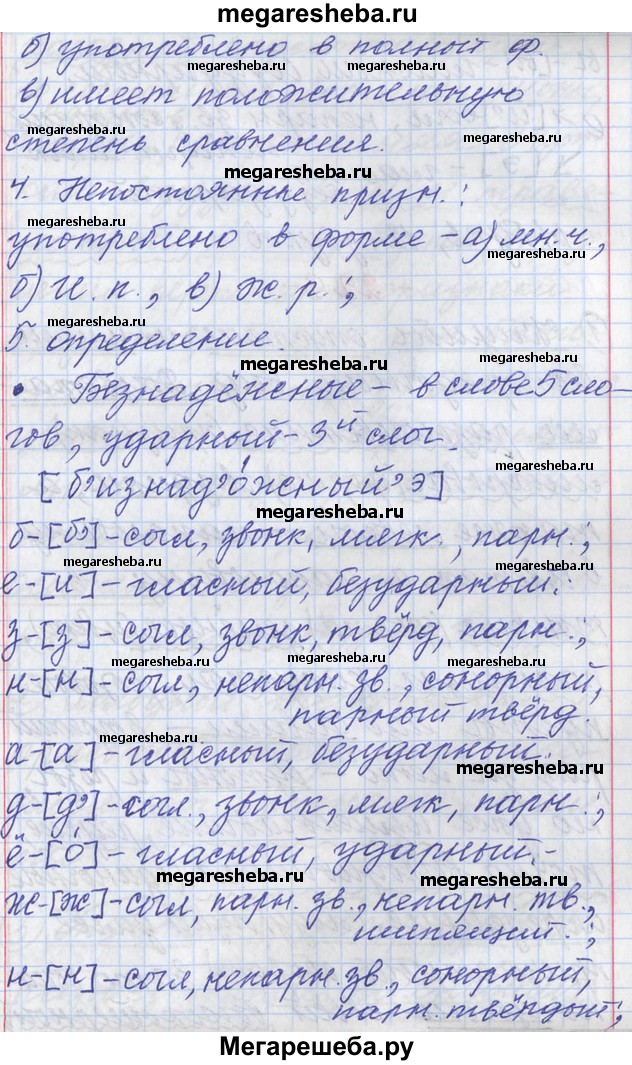 megaresheba.ru
б) употреблено в полной ф.
megaresheba.ru megaresheba.ru
в) имеет положительную
megaresheba.ru
степень сравнения.
megaresheba.ru
4. Непостоянные призн.:
megaresheba.ru
употреблено в форме – а) мн.ч.,
megaresheba.ru
б) И.п., в) ж.р.;
megaresheba.ru
5. определение.
megaresheba.ru megaresheba.ru
• Безнадёжные – в слове 5 сло-
гов, ударный – 3й слог.
megaresheba.ru
[б’изнад’о́жный’э]
megaresheba.ru
б-[б’]-согл, звонк, мягк., парн.;
megaresheba.ru
е-[и]-гласный, безударный.;
megaresheba.ru
з-[з]-согл, звонк, твёрд, парн.;
megaresheba.ru megaresheba.ru
н-[н]-согл, непарн. зв., сонорный,
парный твёрд.
megaresheba.ru
а-[а]-гласный, безударный.
megaresheba.ru
д-[д’]-согл., звонк, мягк, парн.;
megaresheba.ru
ё-[о́]-гласный, ударный.-
megaresheba.ru megaresheba.ru
ж-[ж]-согл, парн. зв., непарн. тв.,
шипящий.;
megaresheba.ru
н-[н]-согл, непарн. зв., сонорный,
megaresheba.ru
парн. твёрдый;
Мегарешеба.ру